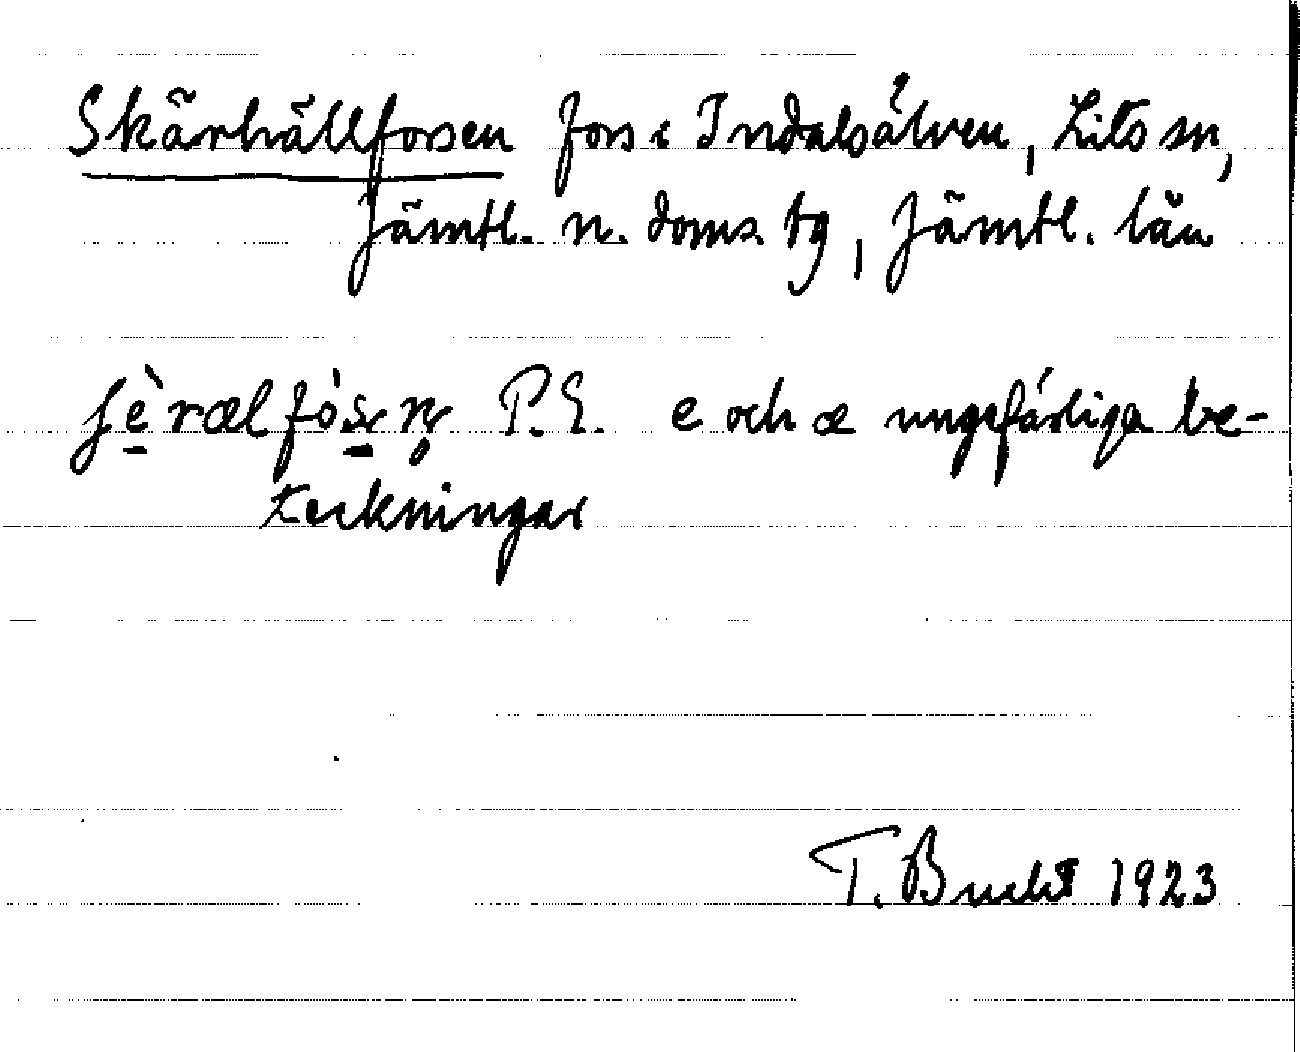 Skärhällforsen fors i Indalsälven, Lits sn,
Jämtl. n. doms. tg, Jämtl. län
ʃè̠rælfós̠n̥ P.E. e och æ ungefärliga be-
teckningar
T. Bucht 1923